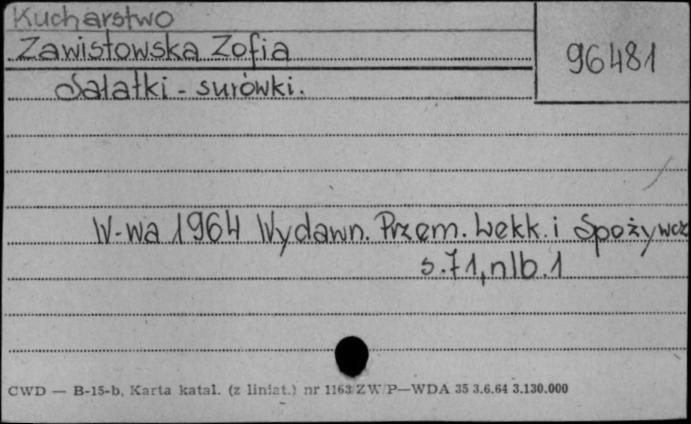 Kucharstwo
Zawistowska Zofia
96481
Sałatki - surówki.
W-wa 1964 Wydawn. Przem. Lekk. i Spożywcz
s. 71, nlb. 1
CWD — B-15-b, Karta katal. (z liniat.) nr 1163 ZW P—WDA 35 3.6.64 3.130.000